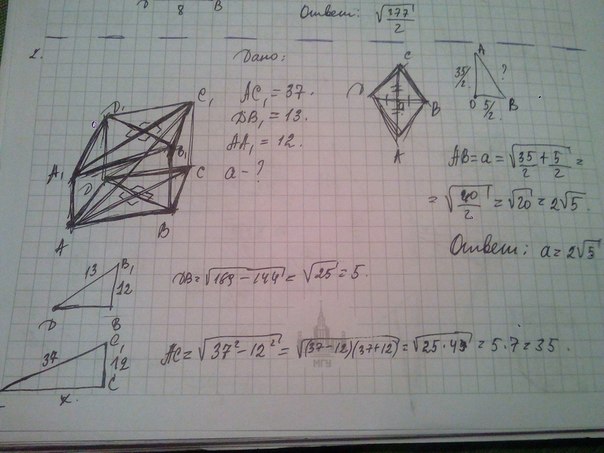 D 8 B
Ответ: √377/2
2.
Дано:
AC₁ = 37.
DB₁ = 13.
AA₁ = 12.
a - ?
D₁ C₁
A₁ B₁
D C
A B
C
D a B
A
A
35/2 ?
O 5/2 B
AB = a = √(35/2 + 5/2) =
= √(40/2) = √20 = 2√5.
Ответ: a = 2√5
13 B₁
12
D B
DB = √(169 - 144) = √25 = 5.
C₁
37 12
C
x.
AC = √(37² - 12²) = √((37-12)(37+12)) = √(25·49) = 5·7 = 35.
МГУ